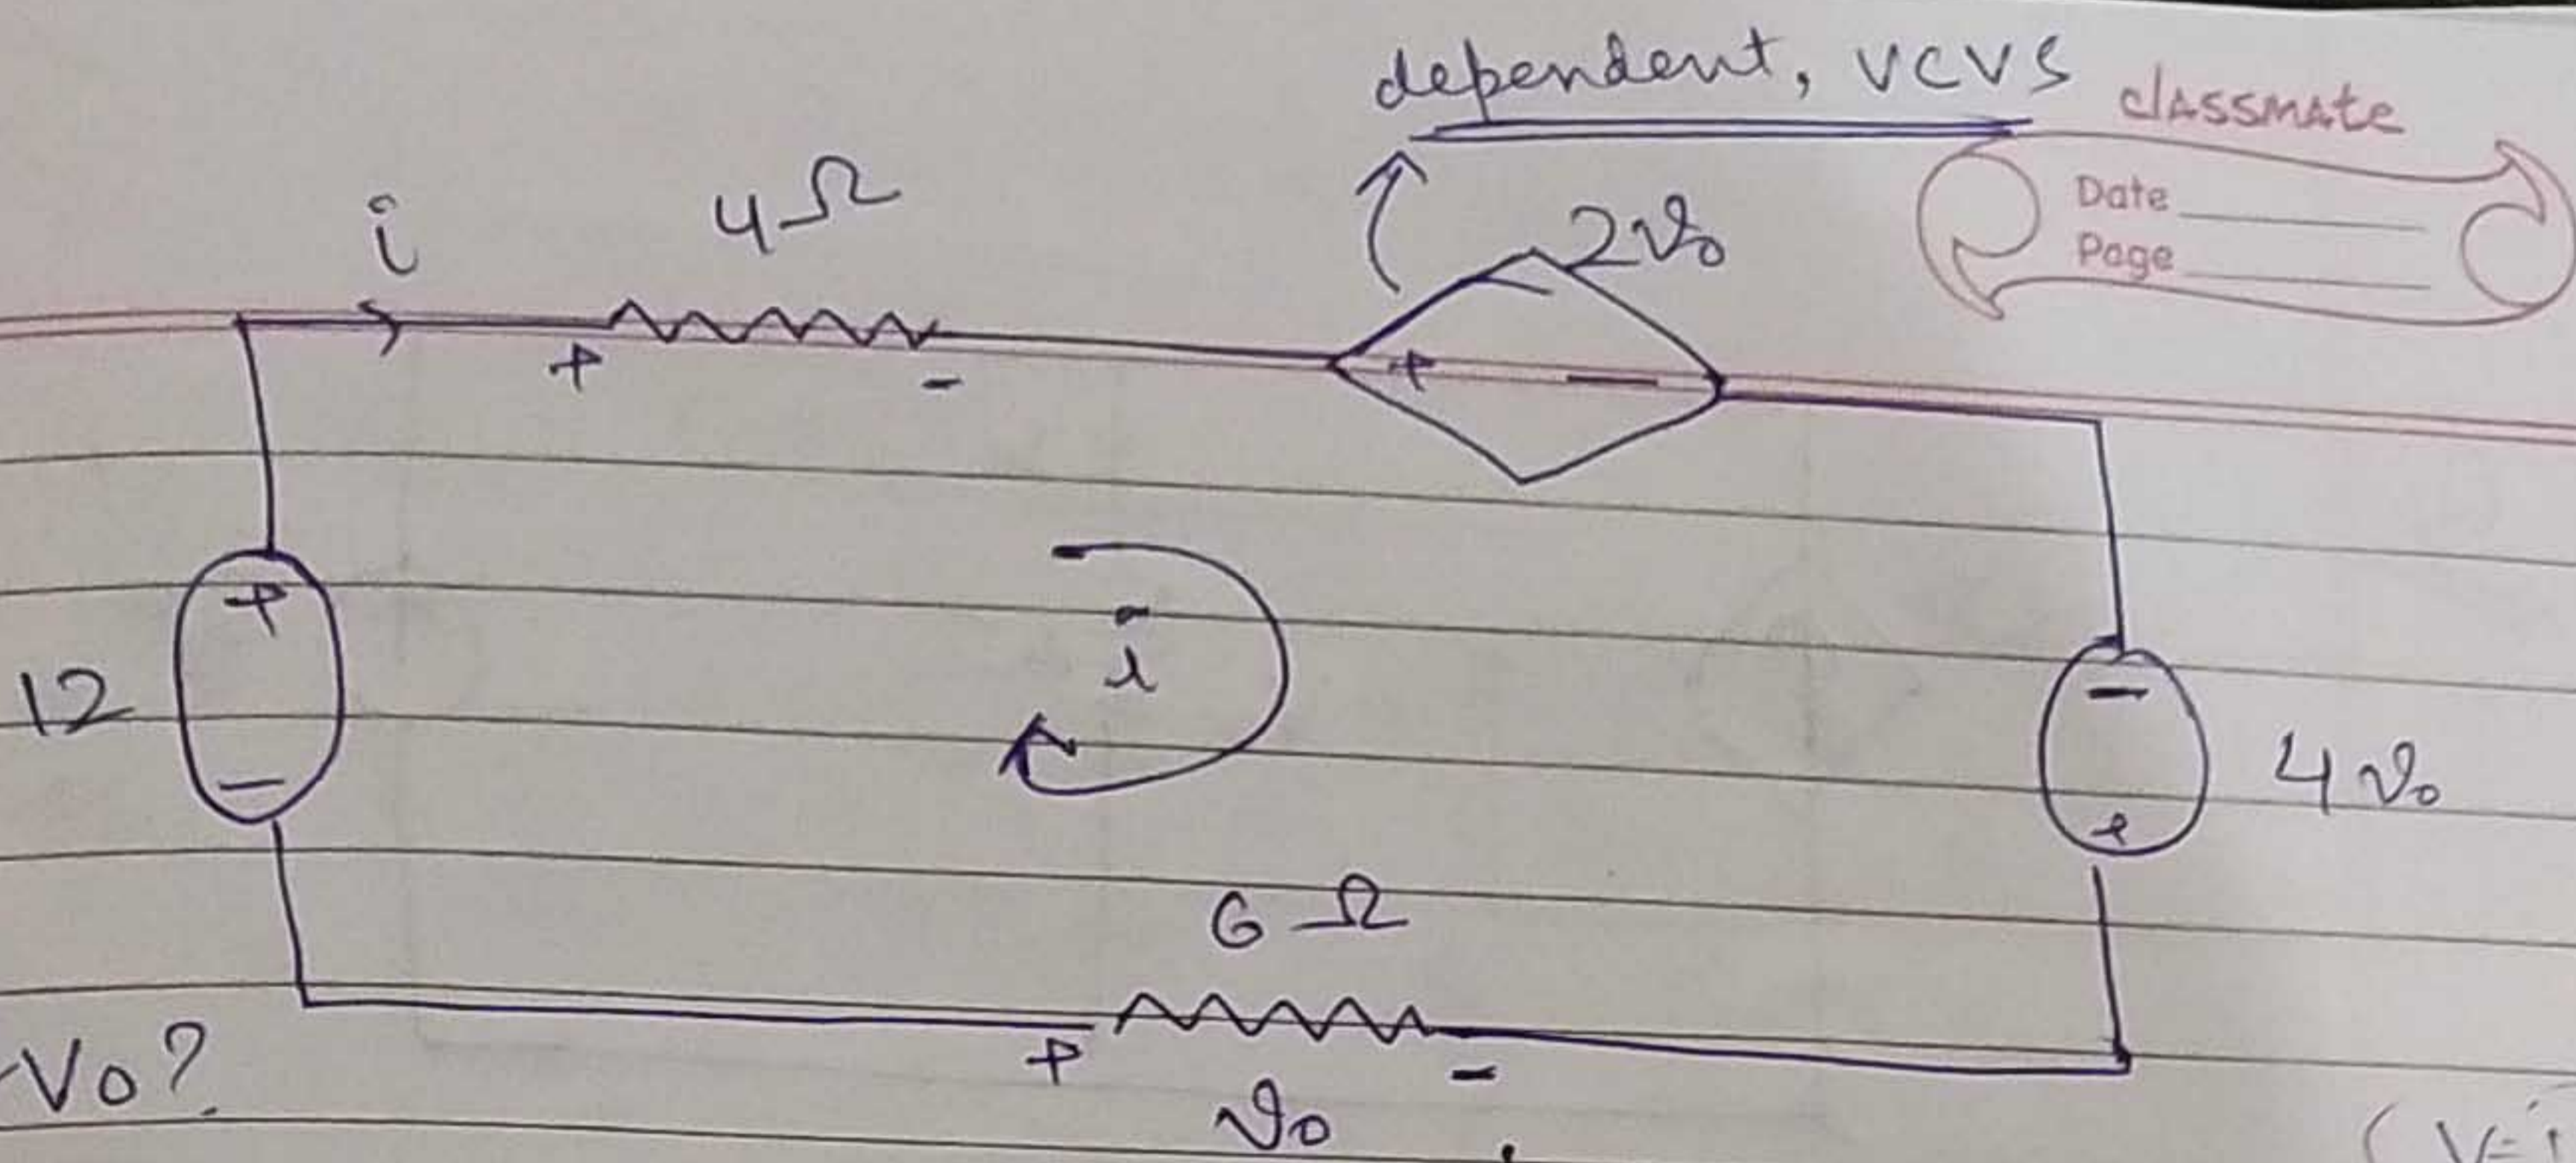 dependent, VCVS
classmate
Date
Page
i
4Ω
2v₀
+
-
+ —
+
i
-
12
4v₀
—
+
6Ω
+
-
V₀?
v₀